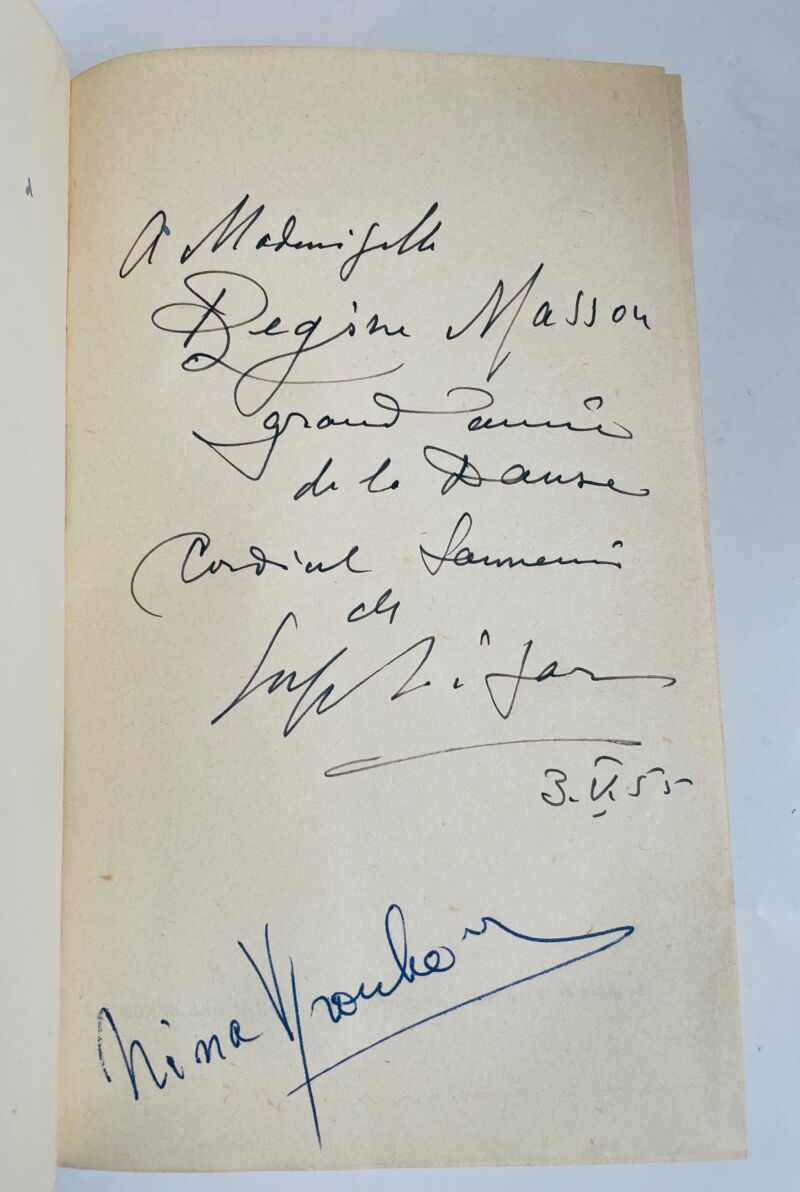 A Mademoiselle
Regine Masson
grand amie
de la Danse
Cordial Souvenir
de
Serge Lifar
3.V.55
Nina Vyroubova